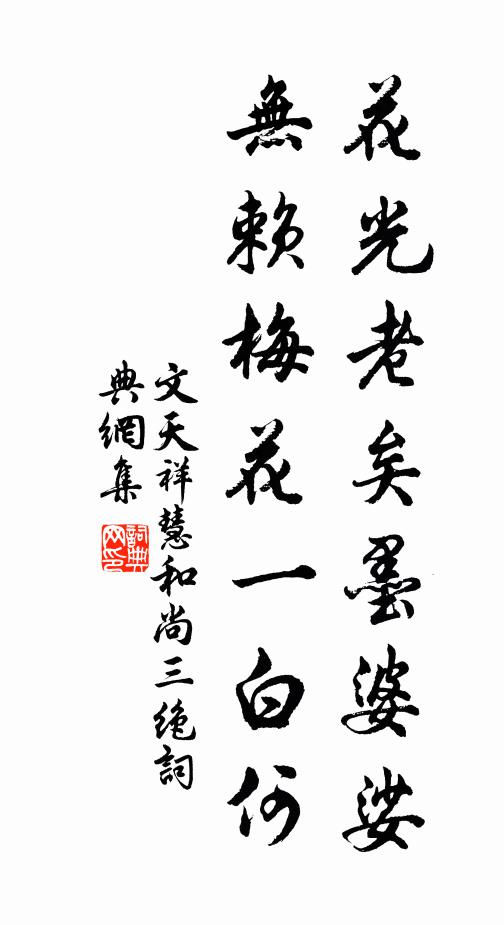 花光老矣墨婆娑
無賴梅花一白何
文天祥慧和尚三絶詞
典網集
詞典
网印